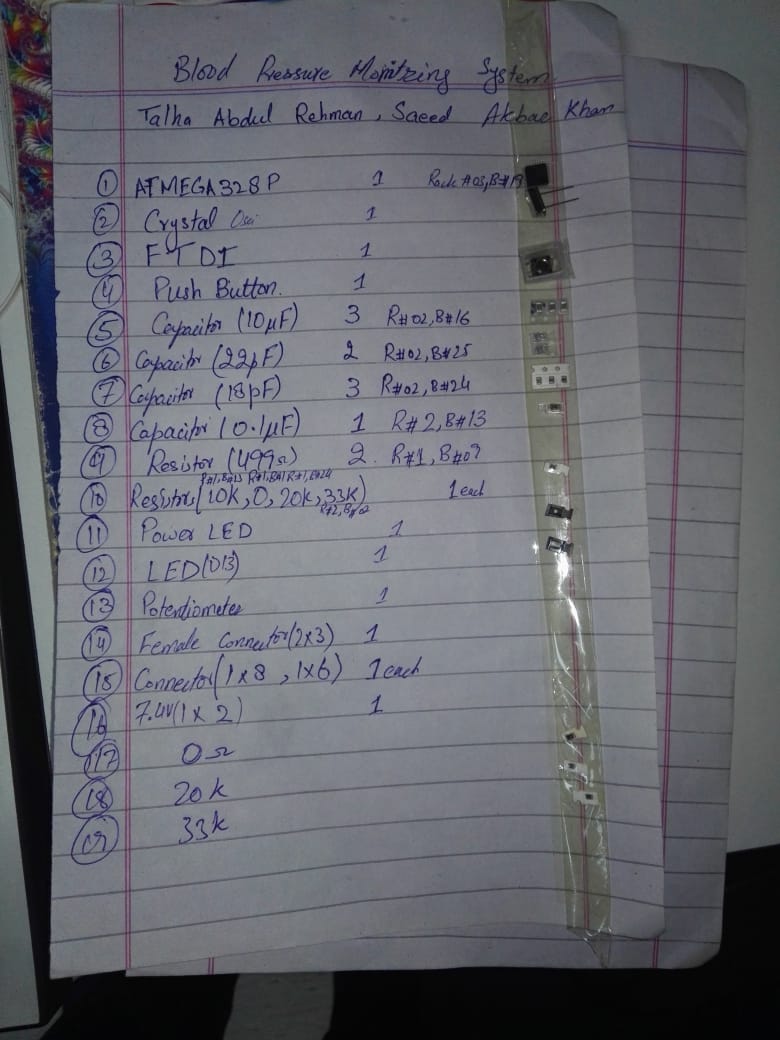 Blood Pressure Monitring System
Talha Abdul Rehman, Saeed Akbar Khan
1 ATMEGA328P 1 Rack #03, B#19
2 Crystal Osci 1
3 FTDI 1
4 Push Button. 1
5 Capacitor (10µF) 3 R#02, B#16
6 Capacitor (22pF) 2 R#02, B#25
7 Capacitor (18pF) 3 R#02, B#24
8 Capacitor (0.1µF) 1 R#2, B#13
9 Resistor (499Ω) 2. R#1, B#09
R#1, B#13 R#1, B#1 R#1, B#24
10 Resistors (10k, 0, 20k, 33k) 1 each
R#2, B#02
11 Power LED 1
12 LED(D13) 1
13 Potentiometer 1
14 Female Connector(2x3) 1
15 Connector(1x8, 1x6) 1 each
16 7.4V(1x2) 1
17 0Ω
18 20k
19 33k